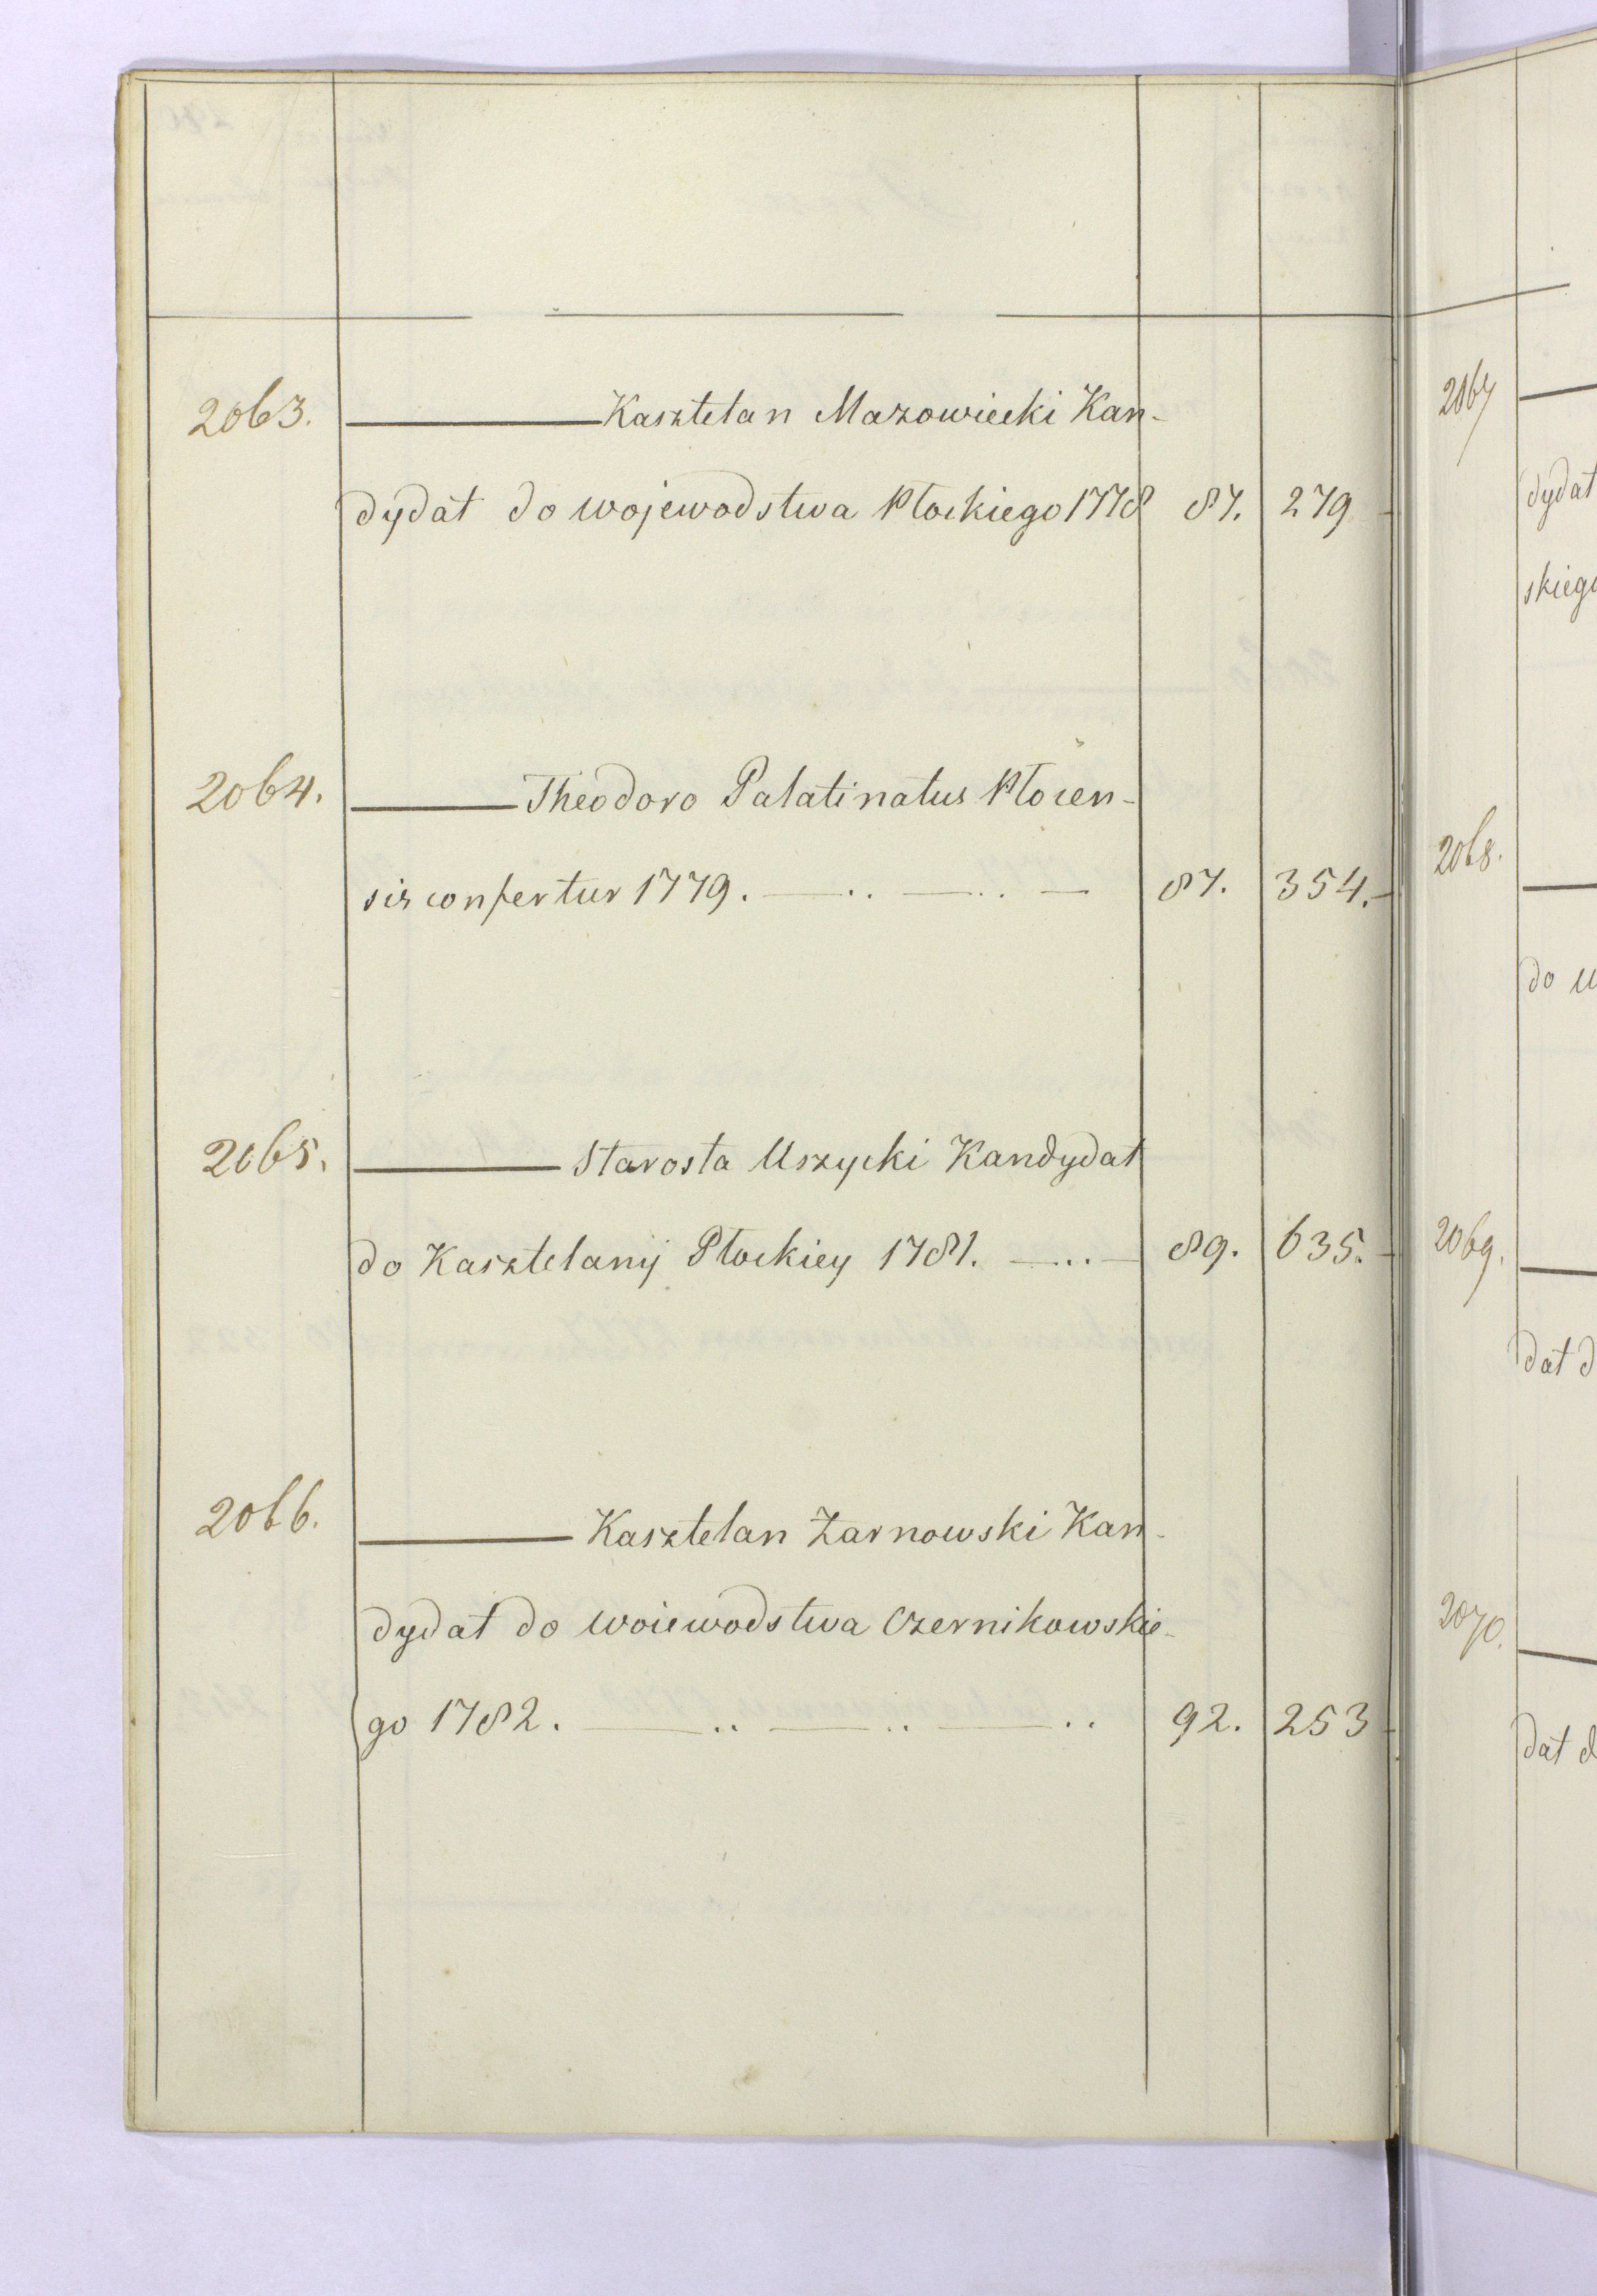 2063. ——— Kasztelan Mazowiecki Kan-
dydat do wojewodstwa Płockiego 1778 87. 279
2064. ——— Theodoro Palatinatus Płocen-
sis confertur 1779. —..—..— 87. 354.
2065. ——— Starosta Uszycki Kandydat
do Kasztelanij Płockiey 1781. —..— 89. 635.
2066. ——— Kasztelan Żarnowski Kan-
dydat do woiewodstwa Czernikowskie-
go 1782. —..—..—.. 92. 253
2067
dydat
skiego
2068.
do
2069.
dat d
2070.
dat d